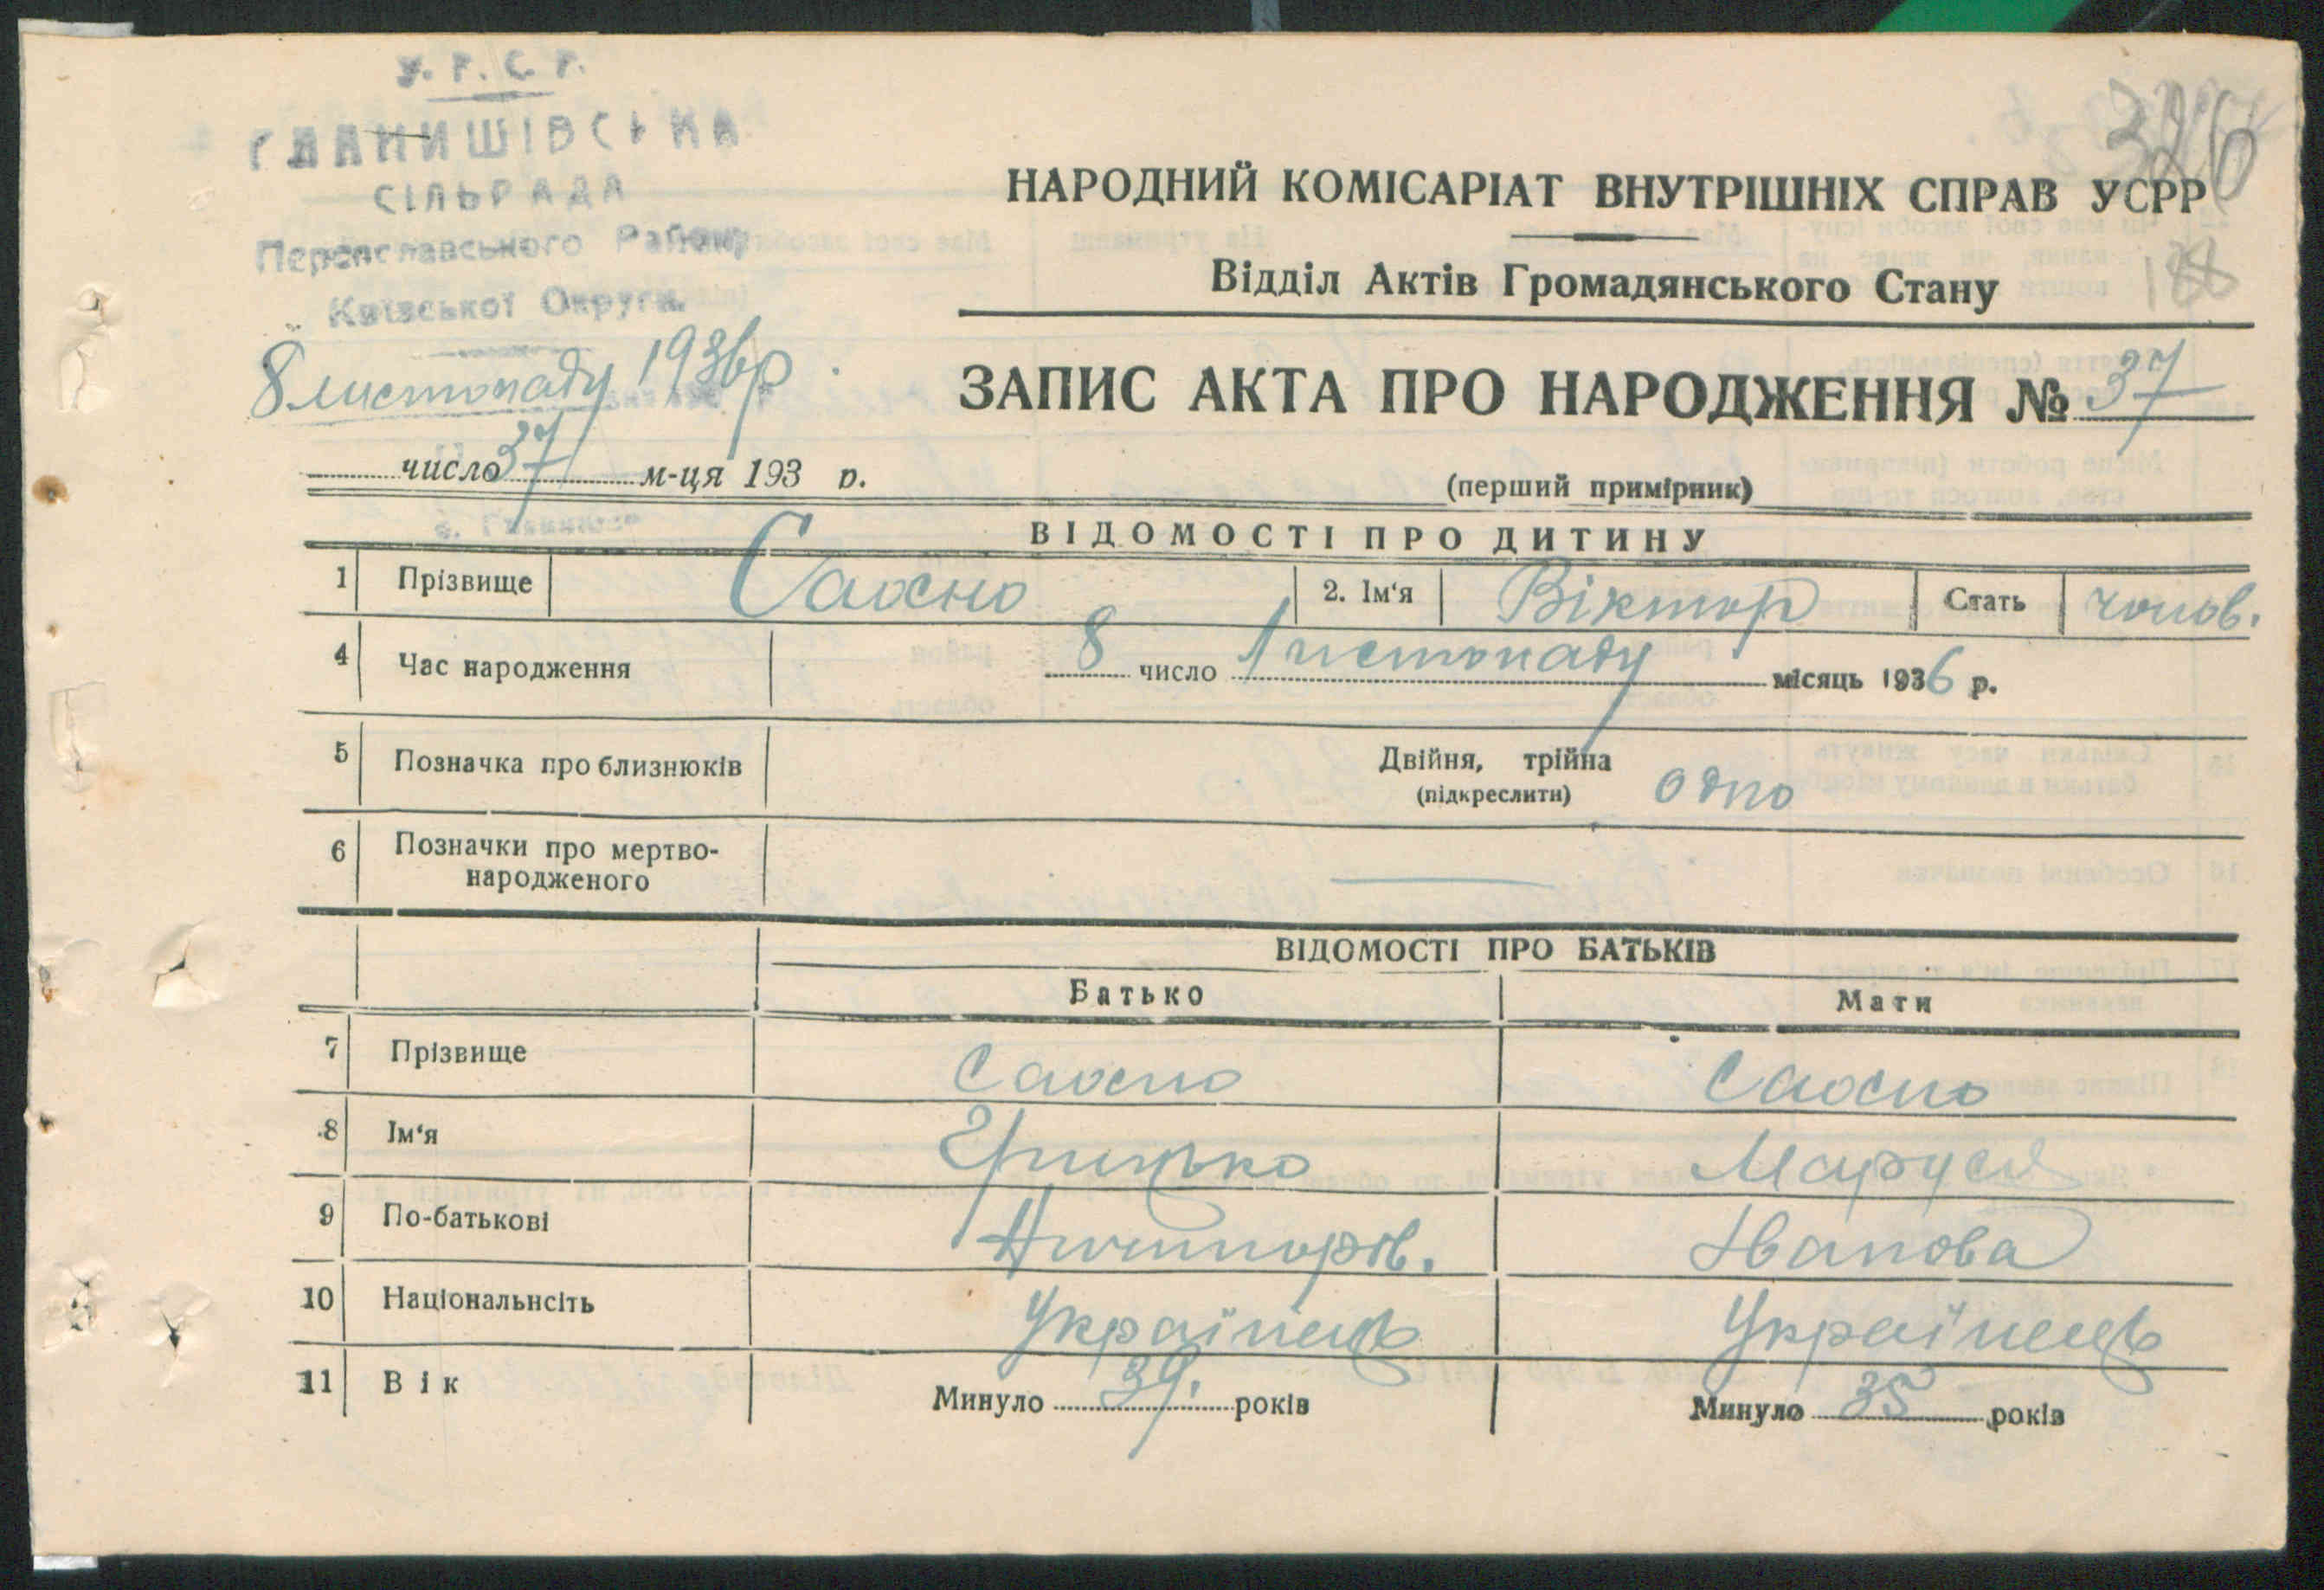 У. Р. С. Р.
ГЛАНИШІВСЬКА
СІЛЬРАДА
Переяславського Району
Київської Округи.
8 листопаду 1936 р.
число 37 м-ця 193 р.
326
188
НАРОДНИЙ КОМІСАРІАТ ВНУТРІШНІХ СПРАВ УСРР
Відділ Актів Громадянського Стану
ЗАПИС АКТА ПРО НАРОДЖЕННЯ № 37
(перший примірник)
ВІДОМОСТІ ПРО ДИТИНУ
1 Прізвище Саохно 2. Ім'я Віктор Стать чолов.
4 Час народження 8 число Листопаду місяць 1936 р.
5 Позначка про близнюків Двійня, трійна
(підкреслити) одно
6 Позначки про мертво-
народженого
ВІДОМОСТІ ПРО БАТЬКІВ
Батько Мати
7 Прізвище
8 Ім'я Грицько Маруся
9 По-батькові Іванова
10 Національнсіть Українець Українець
11 Вік Минуло 39. років Минуло 35 років